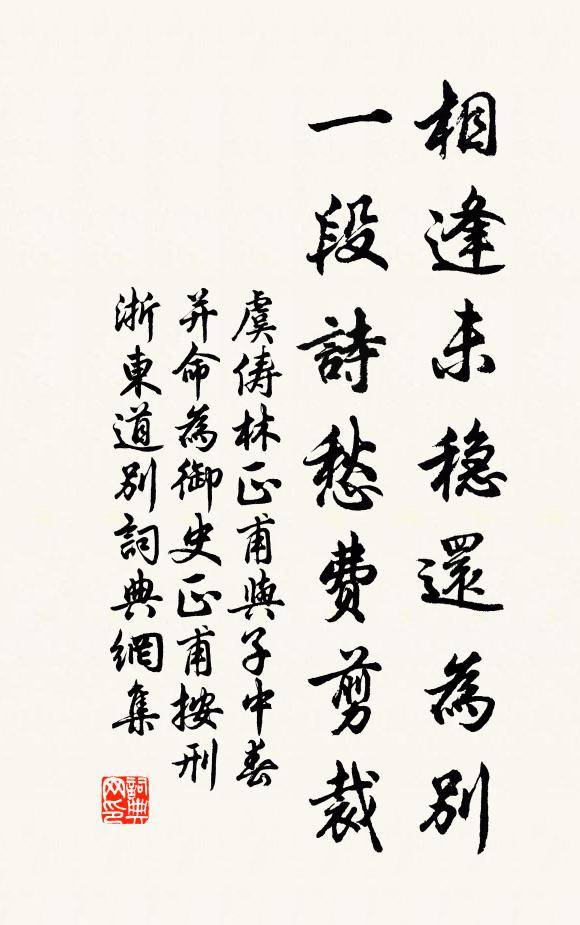 相逢未穩還為別
一段詩愁費剪裁
虞儔林正甫與子中春
并命為御史正甫按刑
浙東道別詞典網集
詞典網印